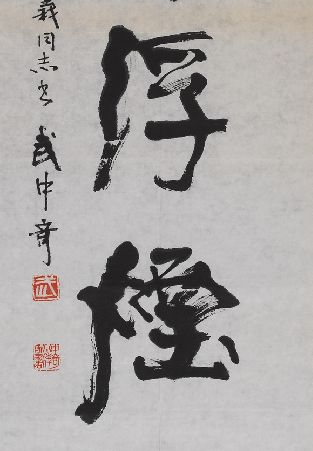 浮煙
義同志書 武中奇
武